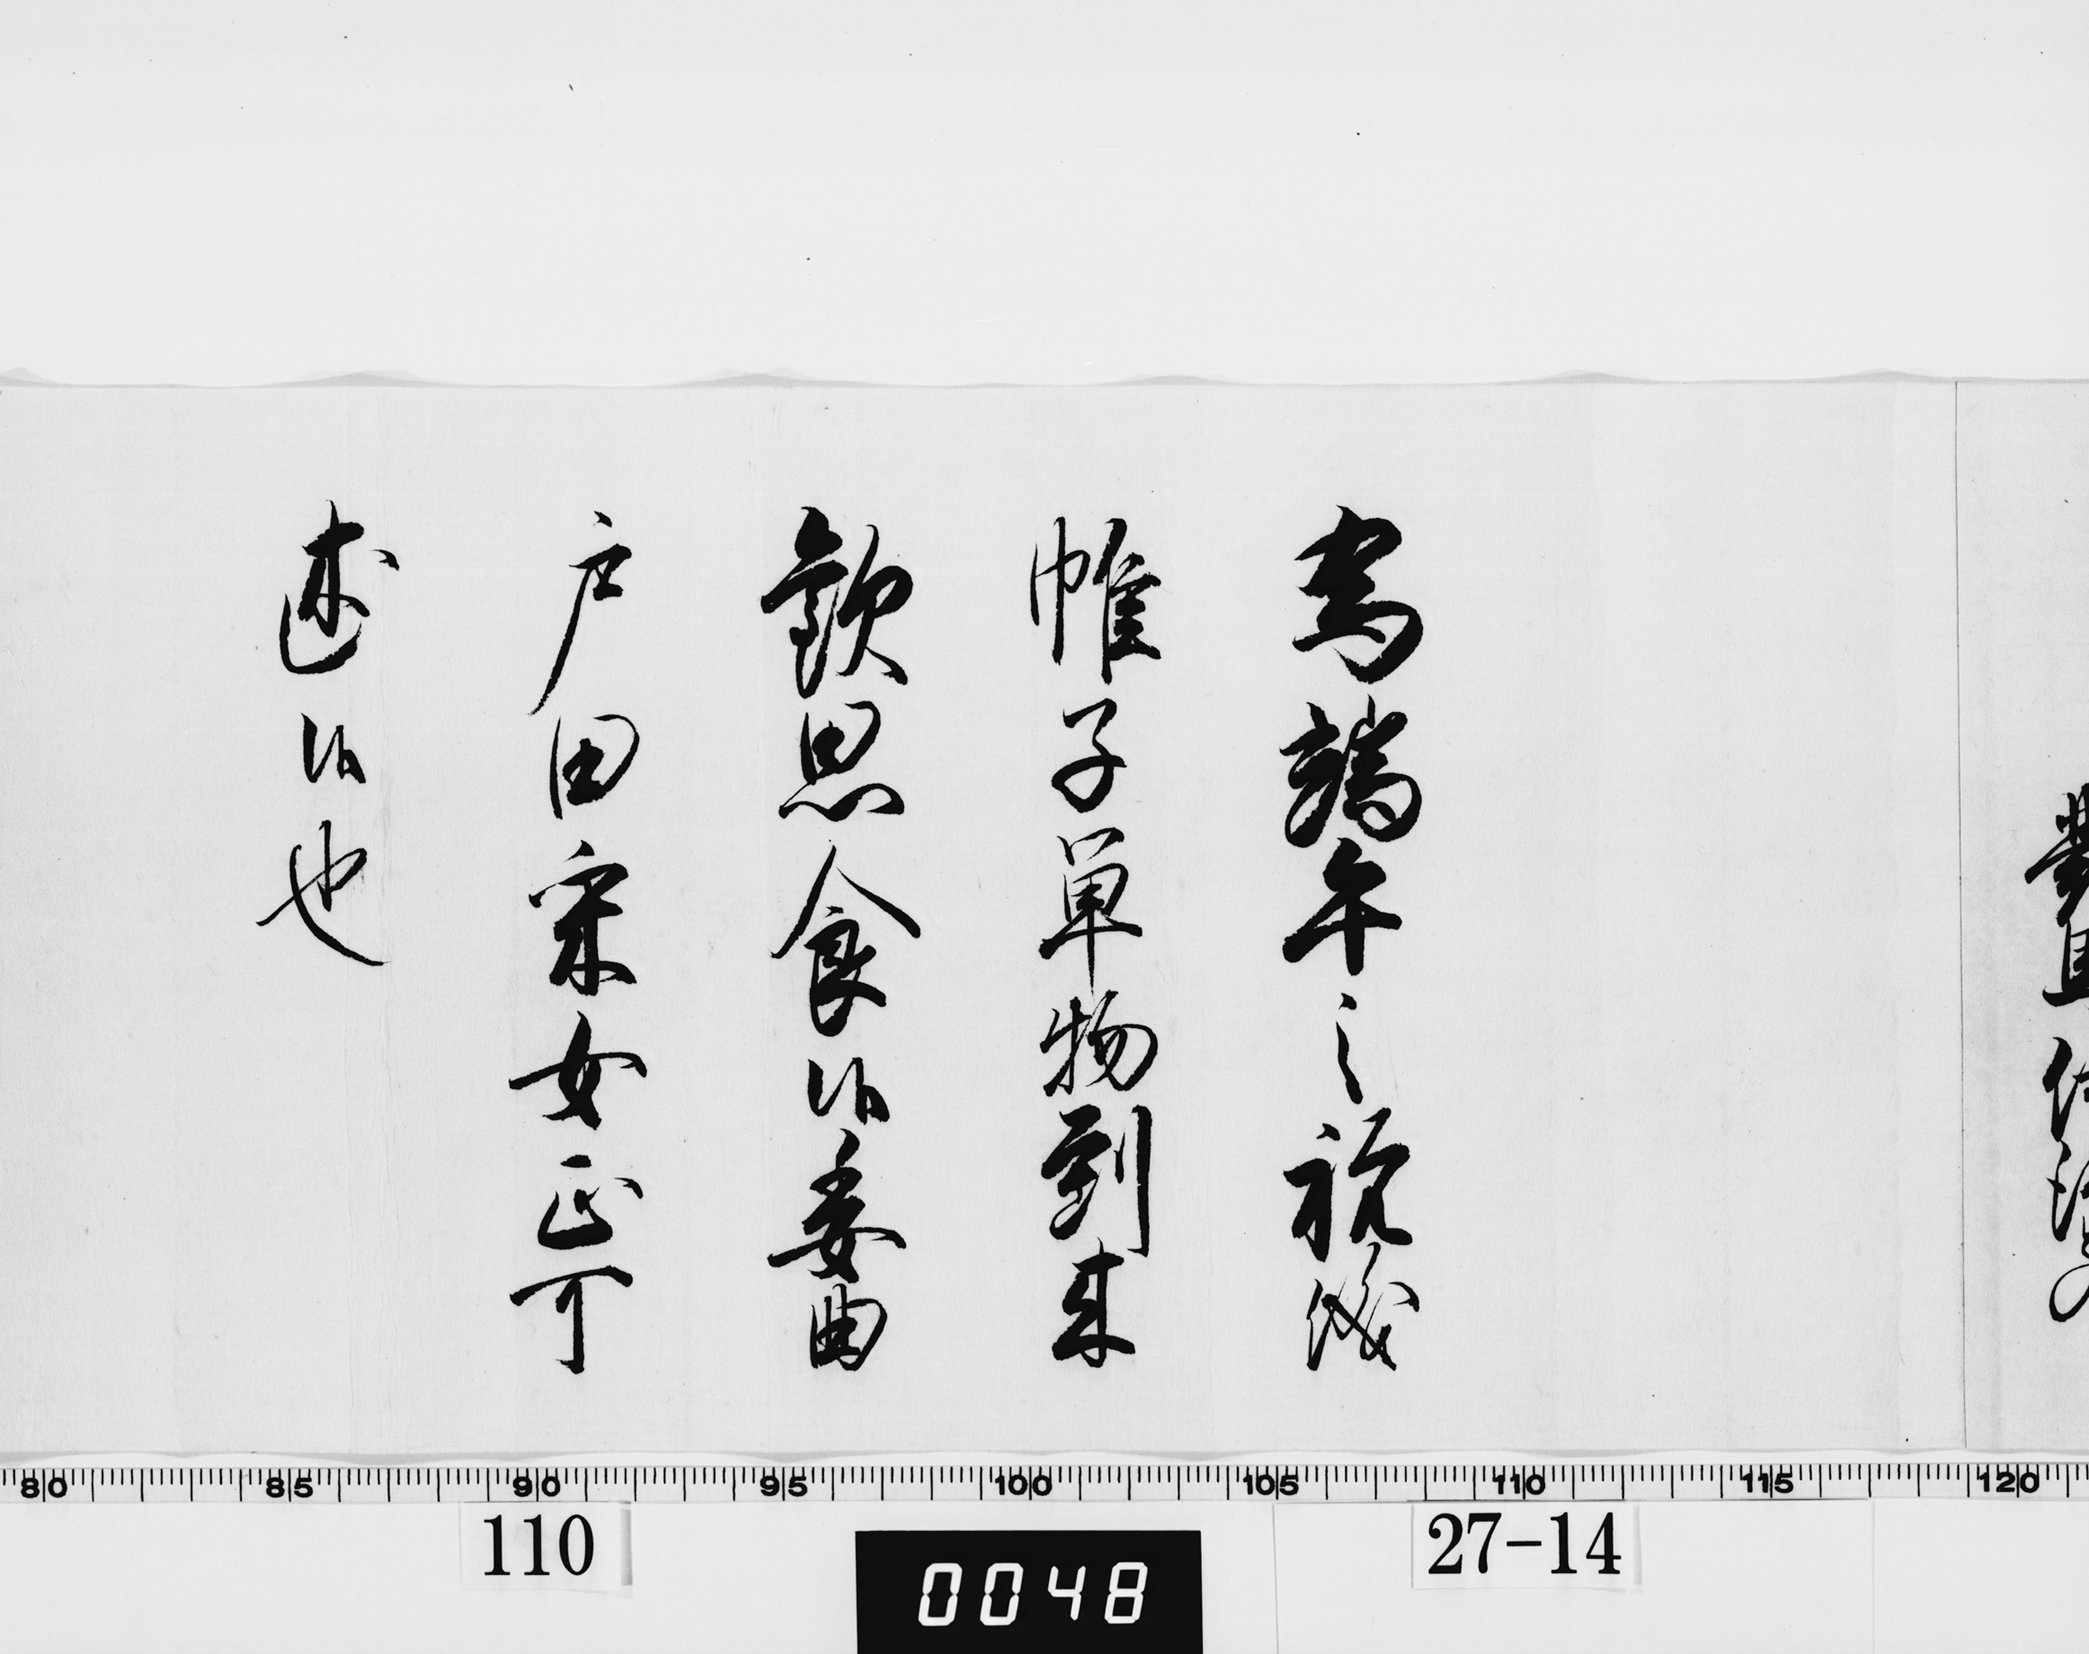 為端午之祝儀
帷子単物到来
歓思食候委曲
戸田采女正可
述候也
80 85 90 95 100 105 110 115 120
110
0048
27-14